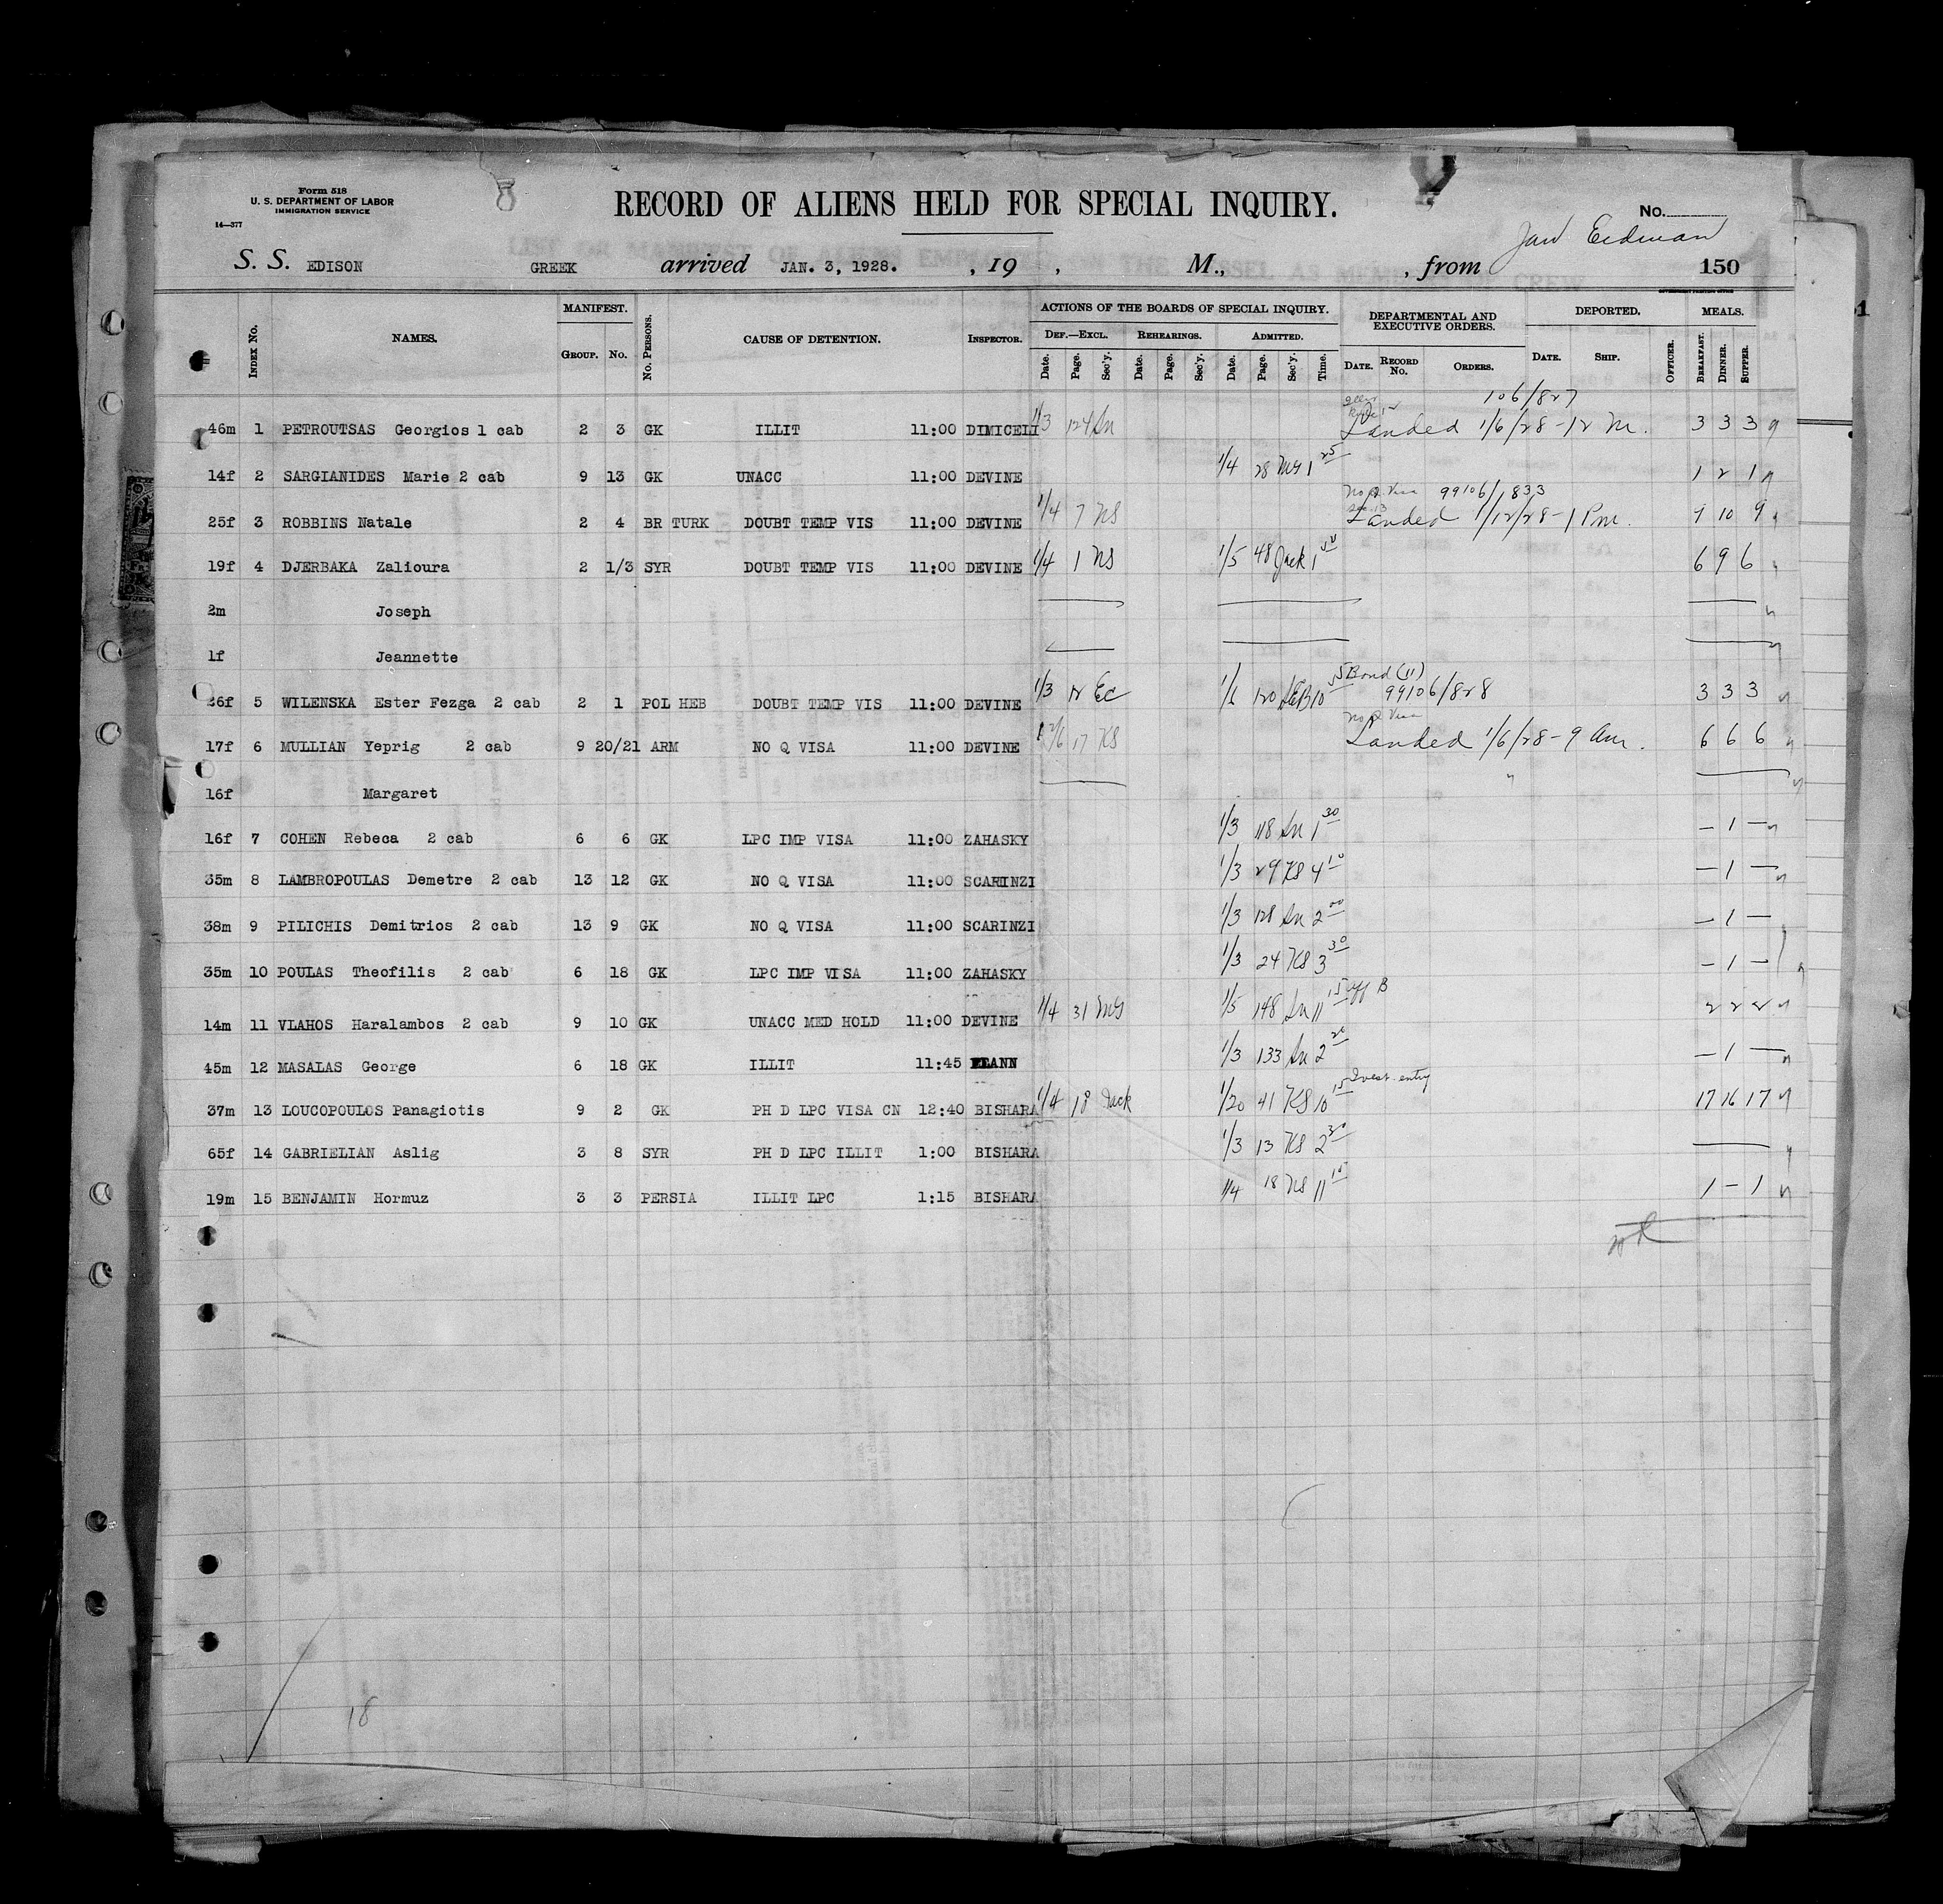 Form 518
U. S. DEPARTMENT OF LABOR
IMMIGRATION SERVICE
14—377
RECORD OF ALIENS HELD FOR SPECIAL INQUIRY.
No.
S. S. EDISON GREEK arrived JAN. 3, 1928. , 19 , M., , from 150
INDEX No. NAMES. MANIFEST. GROUP. No. No. PERSONS. CAUSE OF DETENTION. INSPECTOR. ACTIONS OF THE BOARDS OF SPECIAL INQUIRY. DEF.—EXCL. Date. Page. Sec'y. REHEARINGS. Date. Page. Sec'y. ADMITTED. Date. Page. Sec'y. Time. DEPARTMENTAL AND EXECUTIVE ORDERS. DATE. RECORD No. ORDERS. DEPORTED. DATE. SHIP. OFFICER. MEALS. BREAKFAST. DINNER. SUPPER.
106/827
46m 1 PETROUTSAS Georgios 1 cab 2 3 GK ILLIT 11:00 DIMICELI 1/3 124 Sn Landed 1/6/28-12 M. 3 3 3
14f 2 SARGIANIDES Marie 2 cab 9 13 GK UNACC 11:00 DEVINE 1/4 28 1 25 1 2 1
99106/833
25f 3 ROBBINS Natale 2 4 BR TURK DOUBT TEMP VIS 11:00 DEVINE 1/4 7 NS Landed 1/12/28-1 Pm. 9 10 9
19f 4 DJERBAKA Zalioura 2 1/3 SYR DOUBT TEMP VIS 11:00 DEVINE 1/4 1 NS 1/5 48 Jack 1 6 9 6
2m Joseph
1f Jeannette
Bond (11)
26f 5 WILENSKA Ester Fezga 2 cab 2 1 POL HEB DOUBT TEMP VIS 11:00 DEVINE 1/3 12 EC 120 10 99106/828 3 3 3
No Q Visa
17f 6 MULLIAN Yeprig 2 cab 9 20/21 ARM NO Q VISA 11:00 DEVINE 17 KS Landed 1/6/28-9 Am. 6 6 6
16f Margaret "
16f 7 COHEN Rebeca 2 cab 6 6 GK LPC IMP VISA 11:00 ZAHASKY 1/3 118 Sn 1 30 — 1 —
35m 8 LAMBROPOULAS Demetre 2 cab 13 12 GK NO Q VISA 11:00 SCARINZI 1/3 29 KS 4 10 — 1 —
38m 9 PILICHIS Demitrios 2 cab 13 9 GK NO Q VISA 11:00 SCARINZI 1/3 128 Sn 2 00 — 1 —
35m 10 POULAS Theofilis 2 cab 6 18 GK LPC IMP VISA 11:00 ZAHASKY 1/3 24 KS 3 30 — 1 —
14m 11 VLAHOS Haralambos 2 cab 9 10 GK UNACC MED HOLD 11:00 DEVINE 1/4 31 1/5 148 Sn 11 15 2 2 2
45m 12 MASALAS George 6 18 GK ILLIT 11:45 1/3 133 Sn 2 20 — 1 —
37m 13 LOUCOPOULOS Panagiotis 9 2 GK PH D LPC VISA CN 12:40 BISHARA 1/4 18 Jack 1/20 41 KS 10 15 17 16 17
65f 14 GABRIELIAN Aslig 3 8 SYR PH D LPC ILLIT 1:00 BISHARA 1/3 13 KS 2 30
19m 15 BENJAMIN Hormuz 3 3 PERSIA ILLIT LPC 1:15 BISHARA 1/4 18 NS 11 15 1 — 1
18